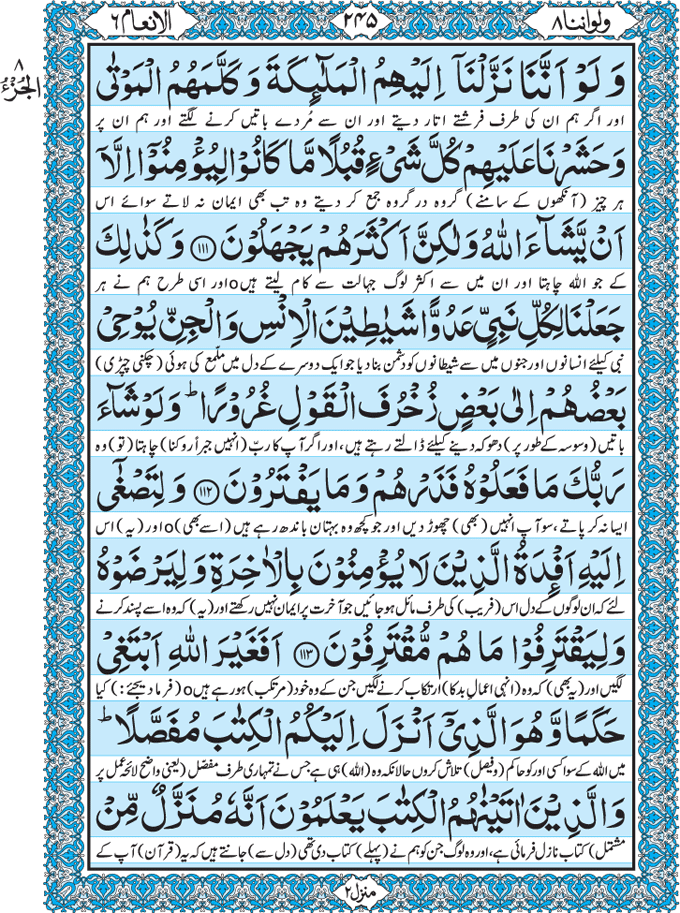 الانعام ٦
٢٤٥
ولواننا ٨
الجزء ٨
وَلَوْ اَنَّنَا نَزَّلْنَاۤ اِلَیْهِمُ الْمَلٰٓىِٕكَةَ وَكَلَّمَهُمُ الْمَوْتٰی
اور اگر ہم ان کی طرف فرشتے اتار دیتے اور ان سے مُردے باتیں کرنے لگتے اور ہم ان پر
وَحَشَرْنَا عَلَیْهِمْ كُلَّ شَیْءٍ قُبُلًا مَّا كَانُوْا لِیُؤْمِنُوْۤا اِلَّاۤ
ہر چیز (آنکھوں کے سامنے) گروہ در گروہ جمع کر دیتے وہ تب بھی ایمان نہ لاتے سوائے اس
اَنْ یَّشَآءَ اللّٰهُ وَلٰكِنَّ اَكْثَرَهُمْ یَجْهَلُوْنَ ۝۱۱۱ وَكَذٰلِكَ
کے جو اللہ چاہتا اور ان میں سے اکثر لوگ جہالت سے کام لیتے ہیںo اور اسی طرح ہم نے ہر
جَعَلْنَا لِكُلِّ نَبِیٍّ عَدُوًّا شَیٰطِیْنَ الْاِنْسِ وَالْجِنِّ یُوْحِیْ
نبی کیلئے انسانوں اور جنوں میں سے شیطانوں کو دشمن بنا دیا جو ایک دوسرے کے دل میں ملمّع کی ہوئی (چکنی چپڑی)
بَعْضُهُمْ اِلٰی بَعْضٍ زُخْرُفَ الْقَوْلِ غُرُوْرًا ؕ وَلَوْ شَآءَ
باتیں (وسوسہ کے طور پر) دھوکہ دینے کیلئے ڈالتے رہتے ہیں، اور اگر آپ کا ربّ (انہیں جبراً روکنا) چاہتا (تو) وہ
رَبُّكَ مَا فَعَلُوْهُ فَذَرْهُمْ وَمَا یَفْتَرُوْنَ ۝۱۱۲ وَلِتَصْغٰۤی
ایسا نہ کر پاتے، سو آپ انہیں (بھی) چھوڑ دیں اور جو کچھ وہ بہتان باندھ رہے ہیں (اسے بھی)o اور (یہ) اس
اِلَیْهِ اَفْـِٕدَةُ الَّذِیْنَ لَا یُؤْمِنُوْنَ بِالْاٰخِرَةِ وَلِیَرْضَوْهُ
لئے کہ ان لوگوں کے دل اس (فریب) کی طرف مائل ہو جائیں جو آخرت پر ایمان نہیں رکھتے اور (یہ) کہ وہ اسے پسند کرنے
وَلِیَقْتَرِفُوْا مَا هُمْ مُّقْتَرِفُوْنَ ۝۱۱۳ اَفَغَیْرَ اللّٰهِ اَبْتَغِیْ
لگیں اور (یہ بھی) کہ وہ (انہی اعمالِ بد کا) ارتکاب کرنے لگیں جن کے وہ خود (مرتکب) ہو رہے ہیںo (فرما دیجئے:) کیا
حَكَمًا وَّهُوَ الَّذِیْۤ اَنْزَلَ اِلَیْكُمُ الْكِتٰبَ مُفَصَّلًا ؕ
میں اللہ کے سوا کسی اور کو حاکم (و فیصل) تلاش کروں حالانکہ وہ (اللہ) ہی ہے جس نے تمہاری طرف مفصّل (یعنی واضح لائحہ عمل پر
وَالَّذِیْنَ اٰتَیْنٰهُمُ الْكِتٰبَ یَعْلَمُوْنَ اَنَّهٗ مُنَزَّلٌ مِّنْ
مشتمل) کتاب نازل فرمائی ہے، اور وہ لوگ جن کو ہم نے (پہلے) کتاب دی تھی (دل سے) جانتے ہیں کہ یہ (قرآن) آپ کے
منزل ٢